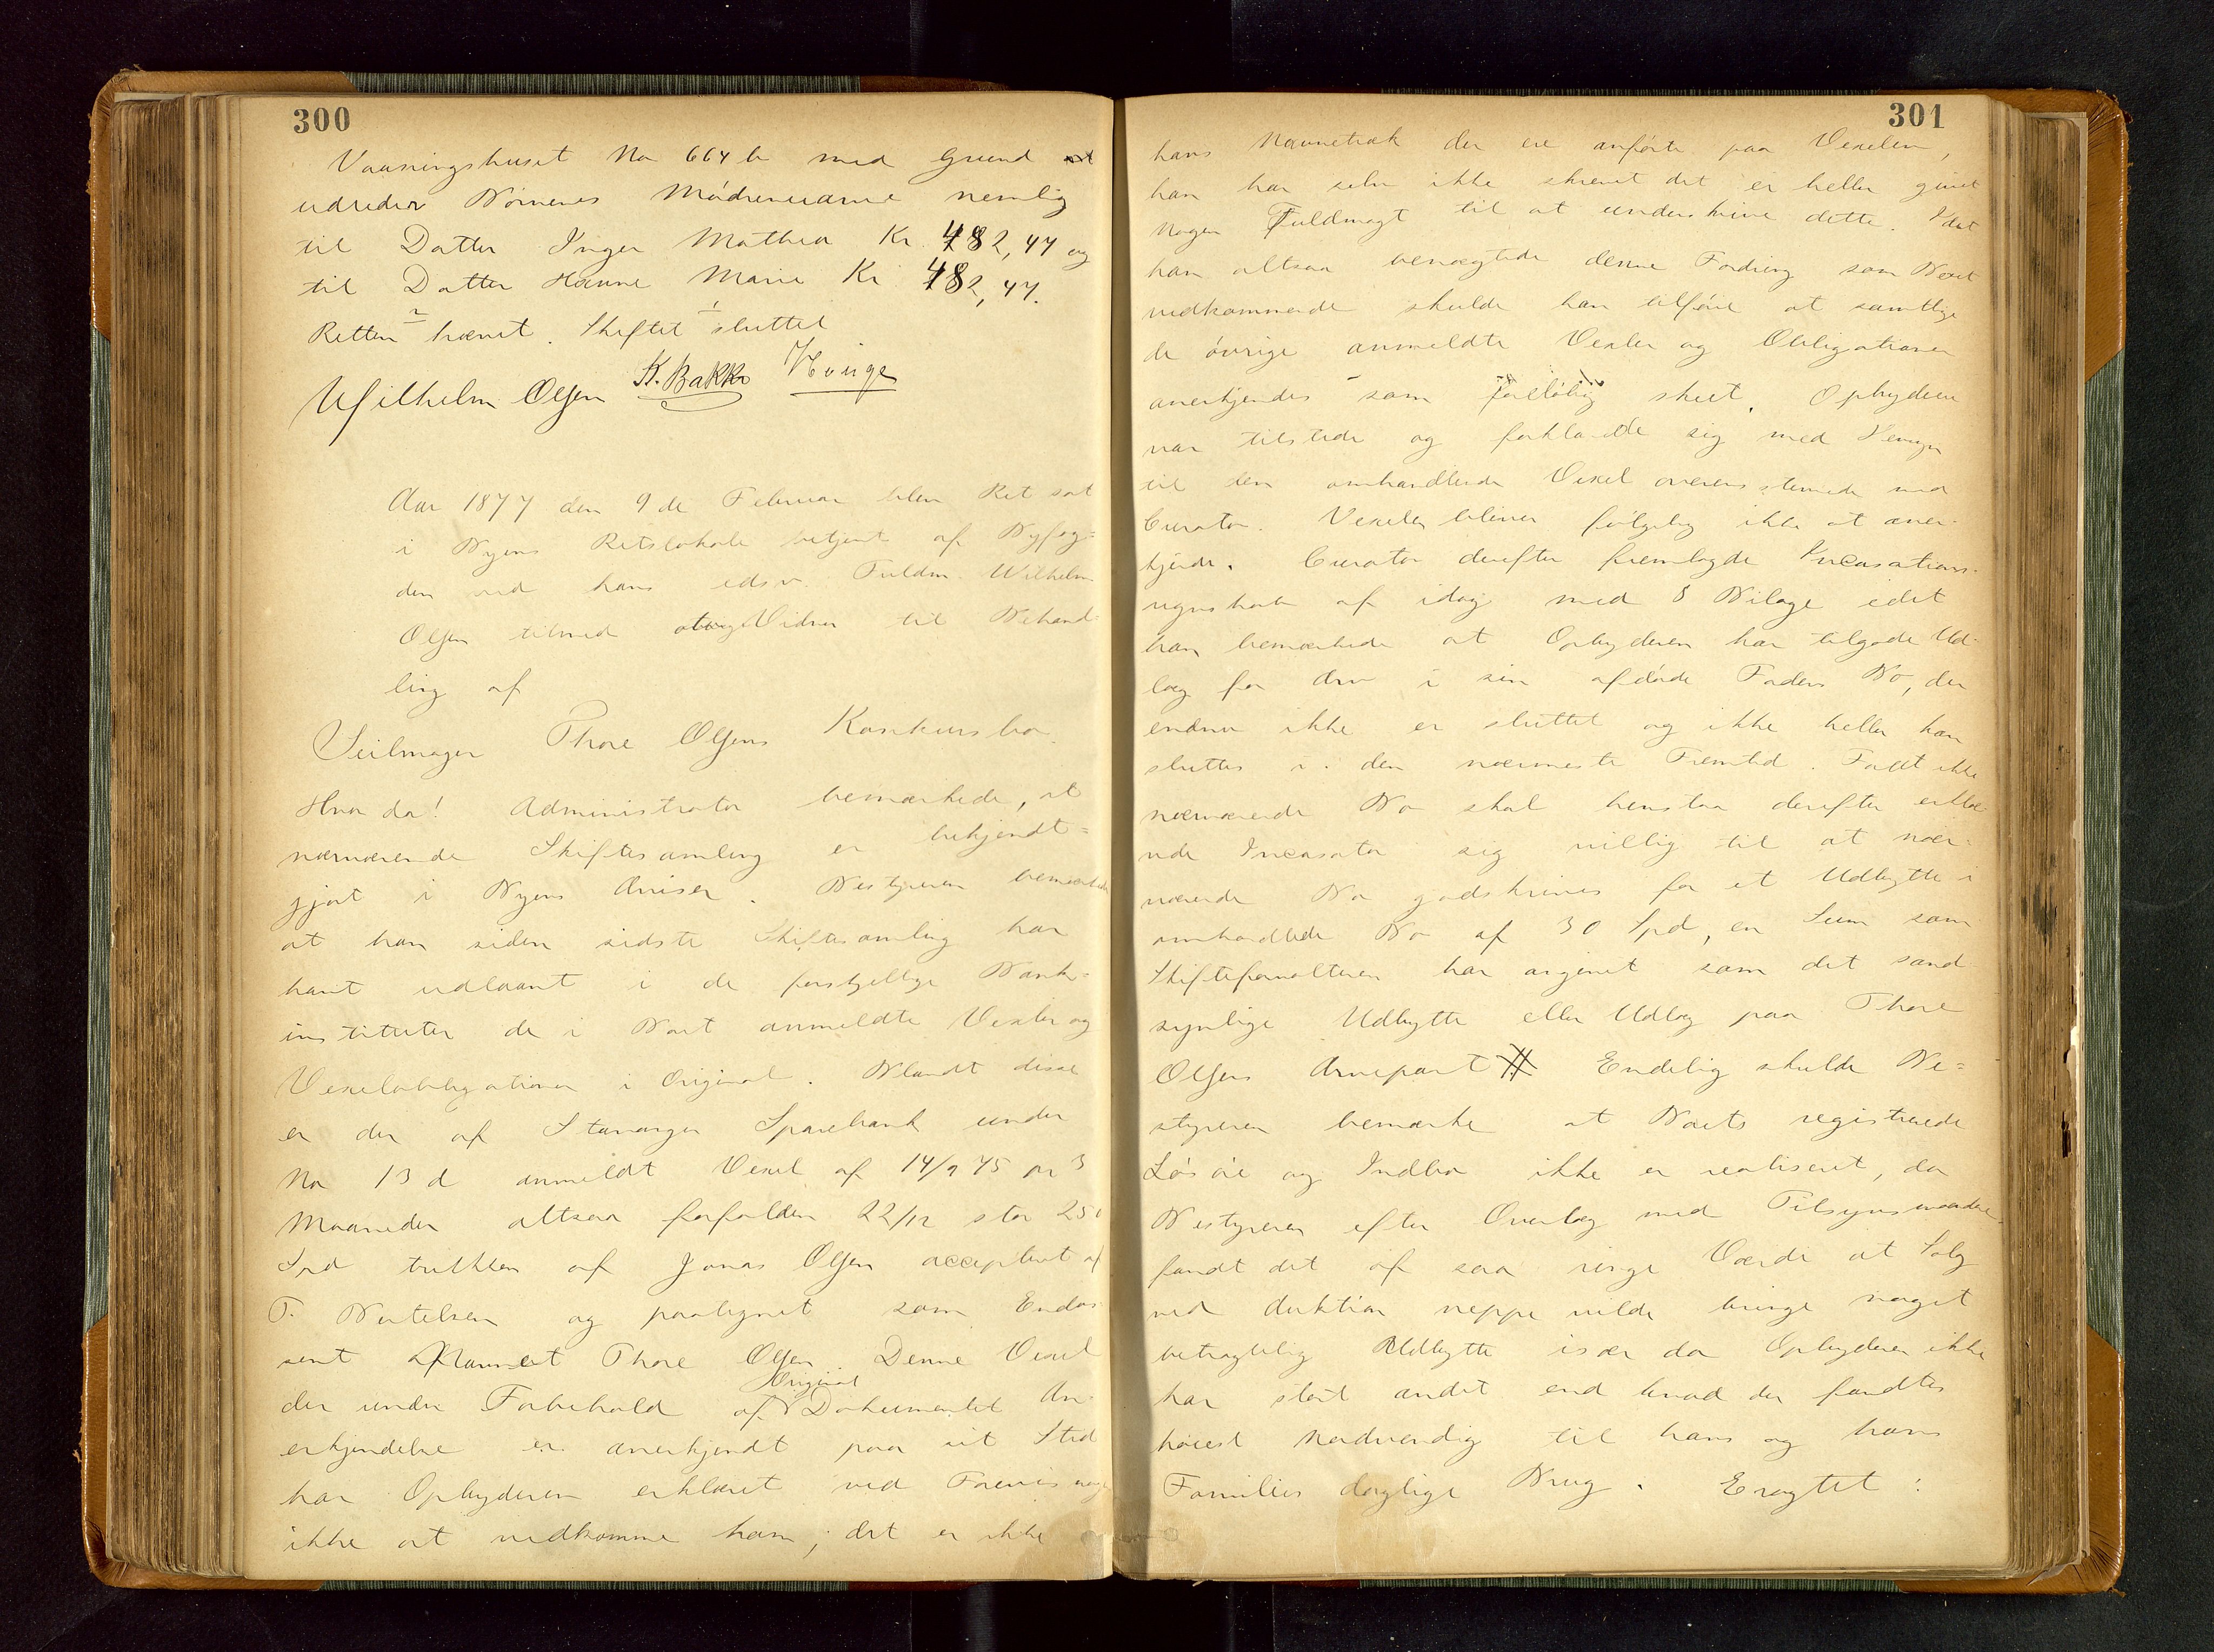 300
Vaaningshuset No 664 b med Grund
udreder Børnenes Mødrenearve nemlig
til Datter Inger Mathea Kr 482,47 og
til Datter Hanne Marie Kr 482,47.
Retten hævet. Skiftet sluttet
Wilhelm Olsen K. Bakke Houge
Aar 1877 den 9de Februar blev Ret sat
i Byens Retslokale betjent af Byfog=
den ved hans edsv. Fuldm. Wilhelm
Olsen tilmed Vidner til Behand=
ling af
Seilmager Thore Olsens Konkursbo.
Hvorda! Administrator bemærkede, at
nærværende Skiftesamling er bekjendt=
gjort i Byens Aviser. Bestyreren bemærkede
at han siden sidste Skiftesamling har
havt udlaant i de forskjellige Bank=
instituter de i Boet anmeldte Vexler og
Vexelobligationer i Original. Blandt disse
er der af Stavanger Sparebank under
No 13 d anmeldt Vexel af 14/9 75 pr 3
Maaneder altsaa forfalden 22/12 stor 250
Spd trukken af Jonas Olsen accepteret af
T. Bertelsen og paategnet som Endos
sent Navnet Thore Olsen. Denne Vexel
der under Forbehold af Original Dokumentet An-
erkjendelse er anerkjendt paa sit Sted
har Opbyderen erklæret ved Forevisning
ikke at vedkomme ham; det er ikke
301
hans Navnetræk der ere anførte paa Vexelen,
han har selv ikke skrevet det er heller givet
Nogen Fuldmagt til at underskrive dette. Idet
han altsaa benægtede denne Fordring som Boet
vedkommende skulde han tilføie at samtlige
de øvrige anmeldte Vexler og Obligationer
anerkjendes som foreløbig skeet. Opbyderen
var tilstede og forklarede sig med Hensyn
til den omhandlende Vexel overensstemmende med
Curator. Vexelen bliver følgelig ikke at aner-
kjende. Curator derefter fremlagde Incasations-
regnskab af idag med 8 Bilage idet
han bemærkede at Opbyderen har tilgode Ud-
læg for Arv i sin afdøde Faders Bo, der
endnu ikke er sluttet og ikke heller kan
sluttes i den nærmeste Fremtid. Fordt ikke
nærværende Bo skal henstaa derefter erklæ
rede Incasator sig villig til at nær-
værende Bo godskrives for et Udbytte i
omhandlede Bo af 30 Spd, en Sum som
Skifteforvalteren har angivet som det sand
synlige Udbytte eller Udlæg paa Thore
Olsens Arvepart # Endelig skulde Be=
styreren bemærke at Boets registrerede
Løsøre og Indbo ikke er realiseret, da
Bestyreren efter Overlæg med Tilsynsmændene
fandt det af saa ringe Værdi at Salg
ved Auktion neppe vilde bringe noget
betragtelig Udbytte især da Opbyderen ikke
har stort andet end hvad der fandtes
høiest nødvendig til hans og hans
Families daglige Brug. Eragtet: